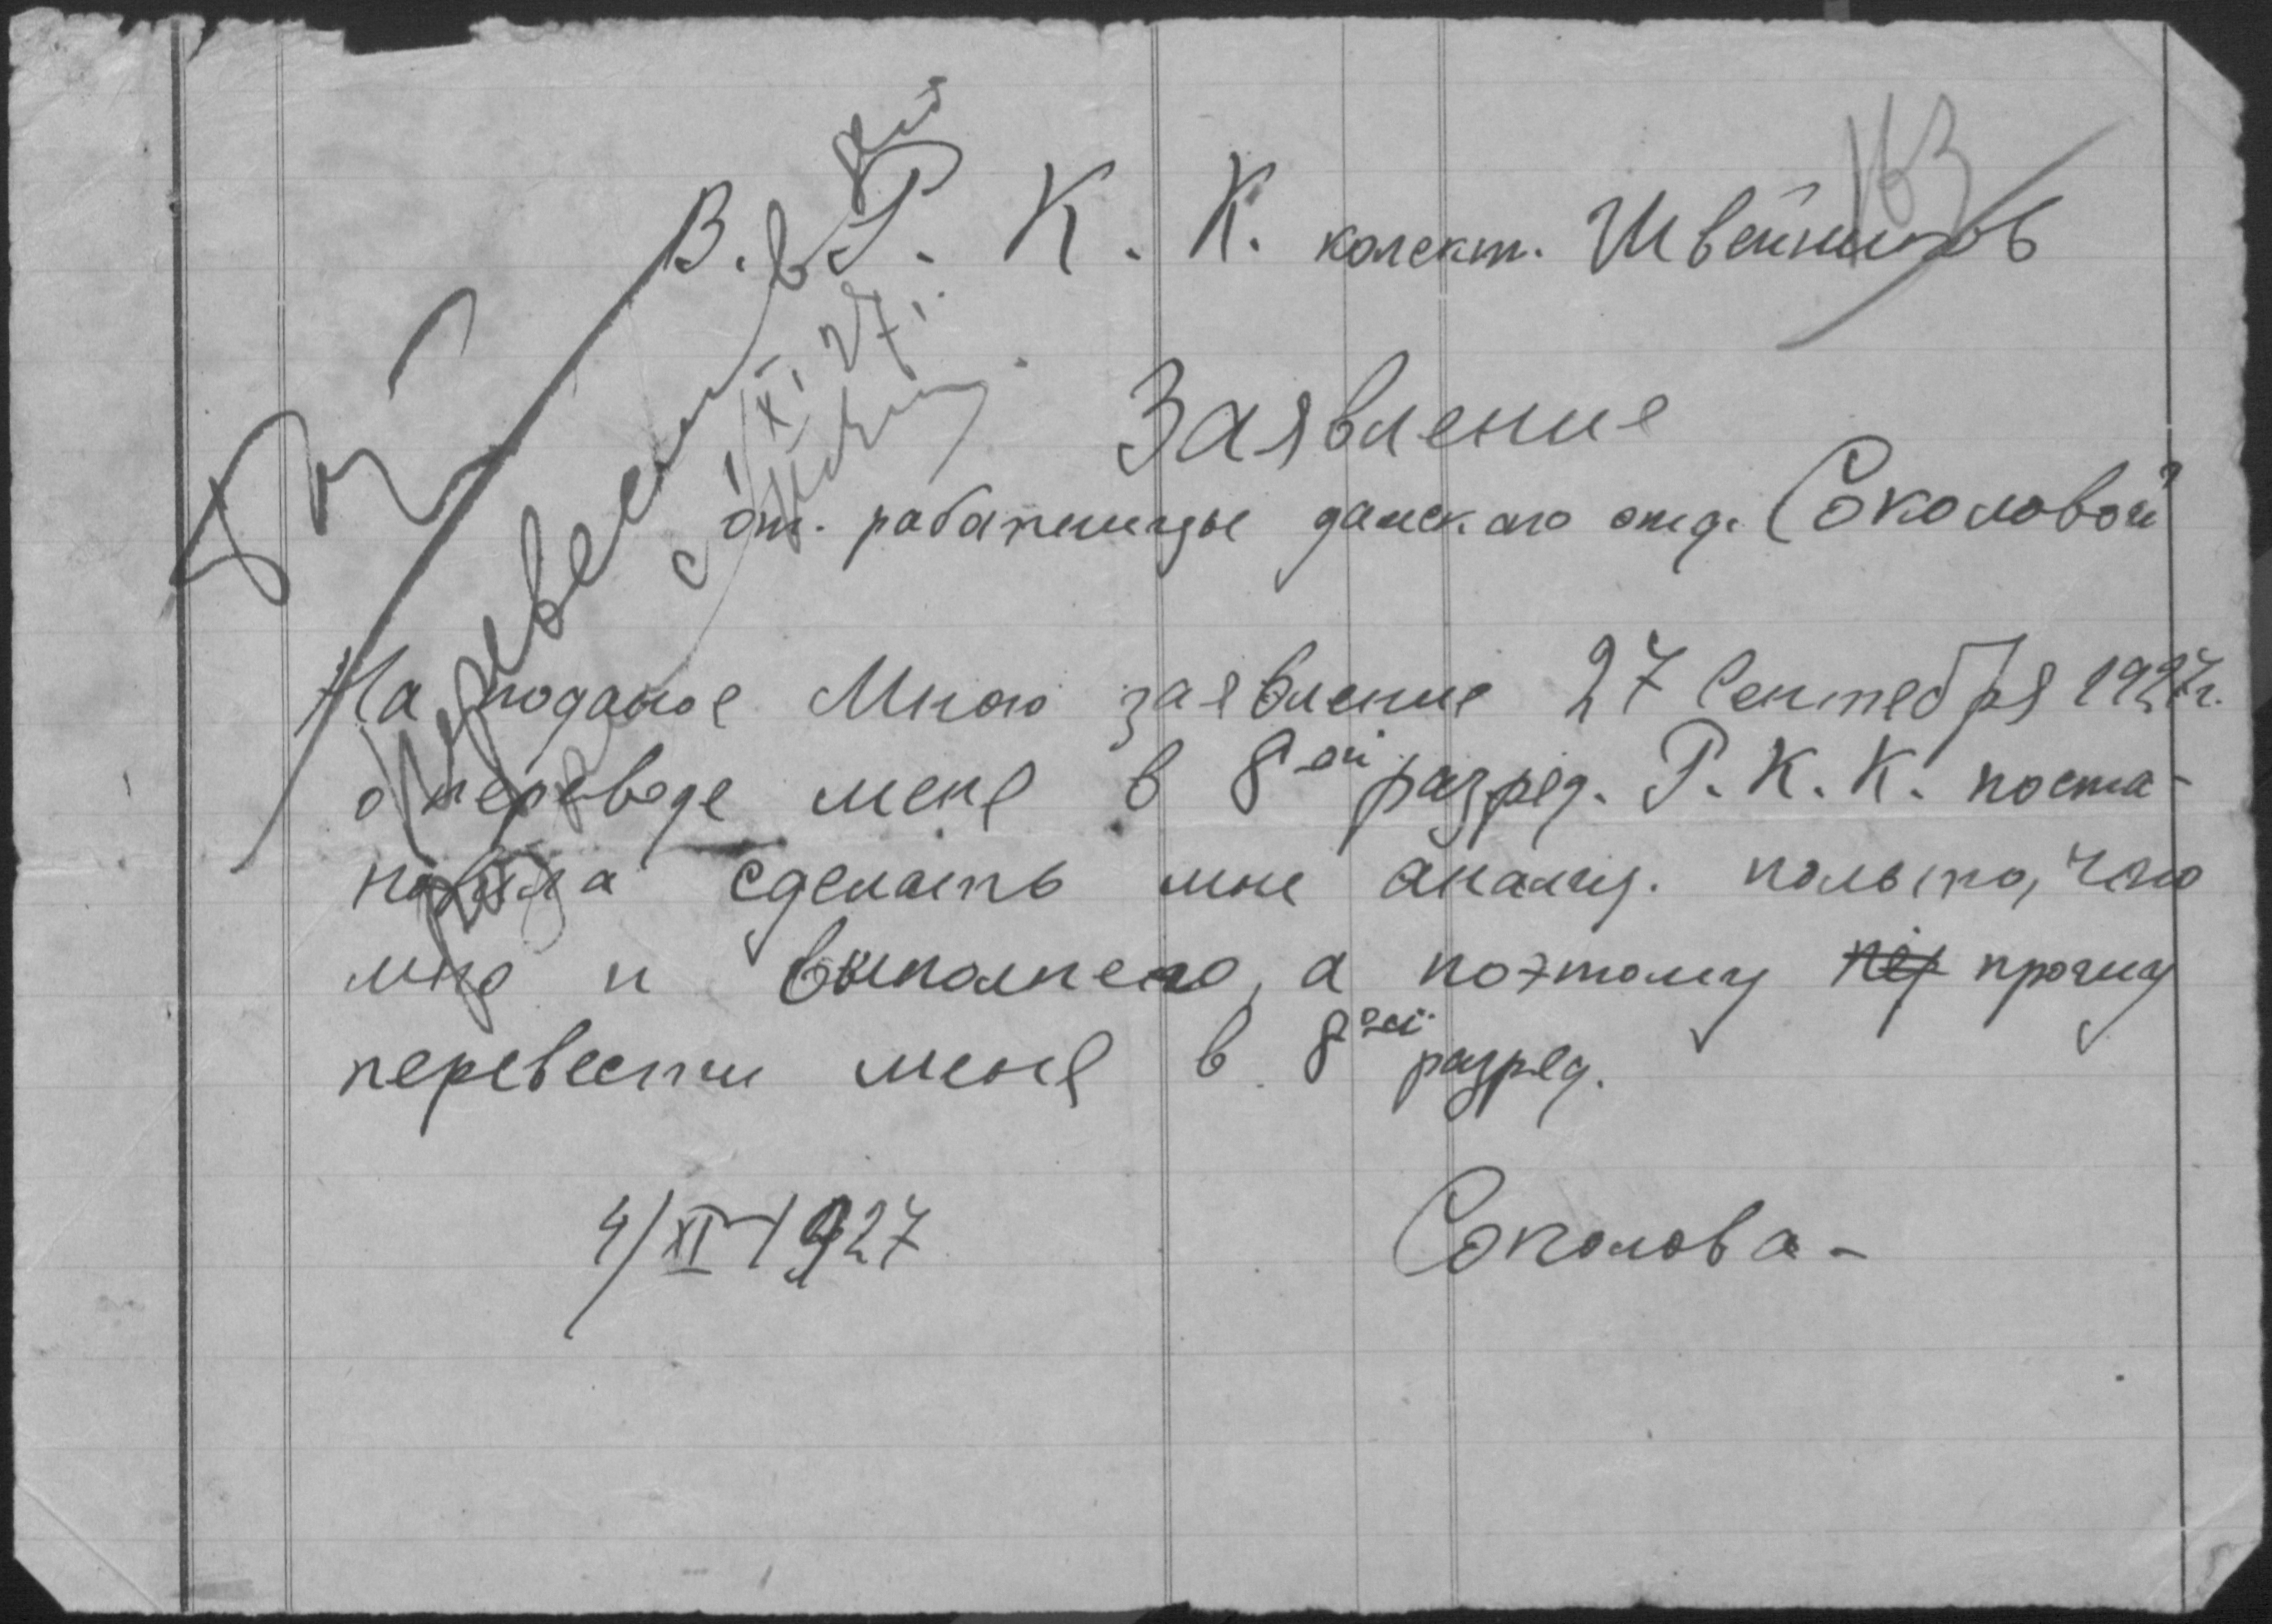 163
В. Р. К. К. колект. Швейников
Заявление
от. работницы дамского отд. Соколовой
На поданое Мною заявление 27 Сентебря 1927г.
о переводе меня в 8-ой разряд. Р. К. К. поста-
новила сделать мне анализ. польто, что
мно и выполнено, а поэтому пер прошу
перевести меня в 8ой разряд.
4/XI-1927
Соколова-
Перевести в 8ой
с 1/XI, 27,